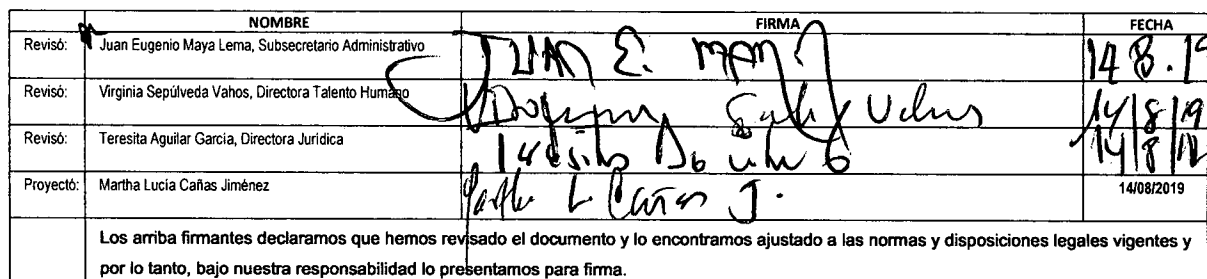 NOMBRE FIRMA FECHA
Revisó: Juan Eugenio Maya Lema, Subsecretario Administrativo JUAN E. MAYA 14 8.19
Revisó: Virginia Sepúlveda Vahos, Directora Talento Humano 14/8/19
Revisó: Teresita Aguilar García, Directora Jurídica 14/8/19
Proyectó: Martha Lucía Cañas Jiménez Martha L Cañas J. 14/08/2019
Los arriba firmantes declaramos que hemos revisado el documento y lo encontramos ajustado a las normas y disposiciones legales vigentes y
por lo tanto, bajo nuestra responsabilidad lo presentamos para firma.